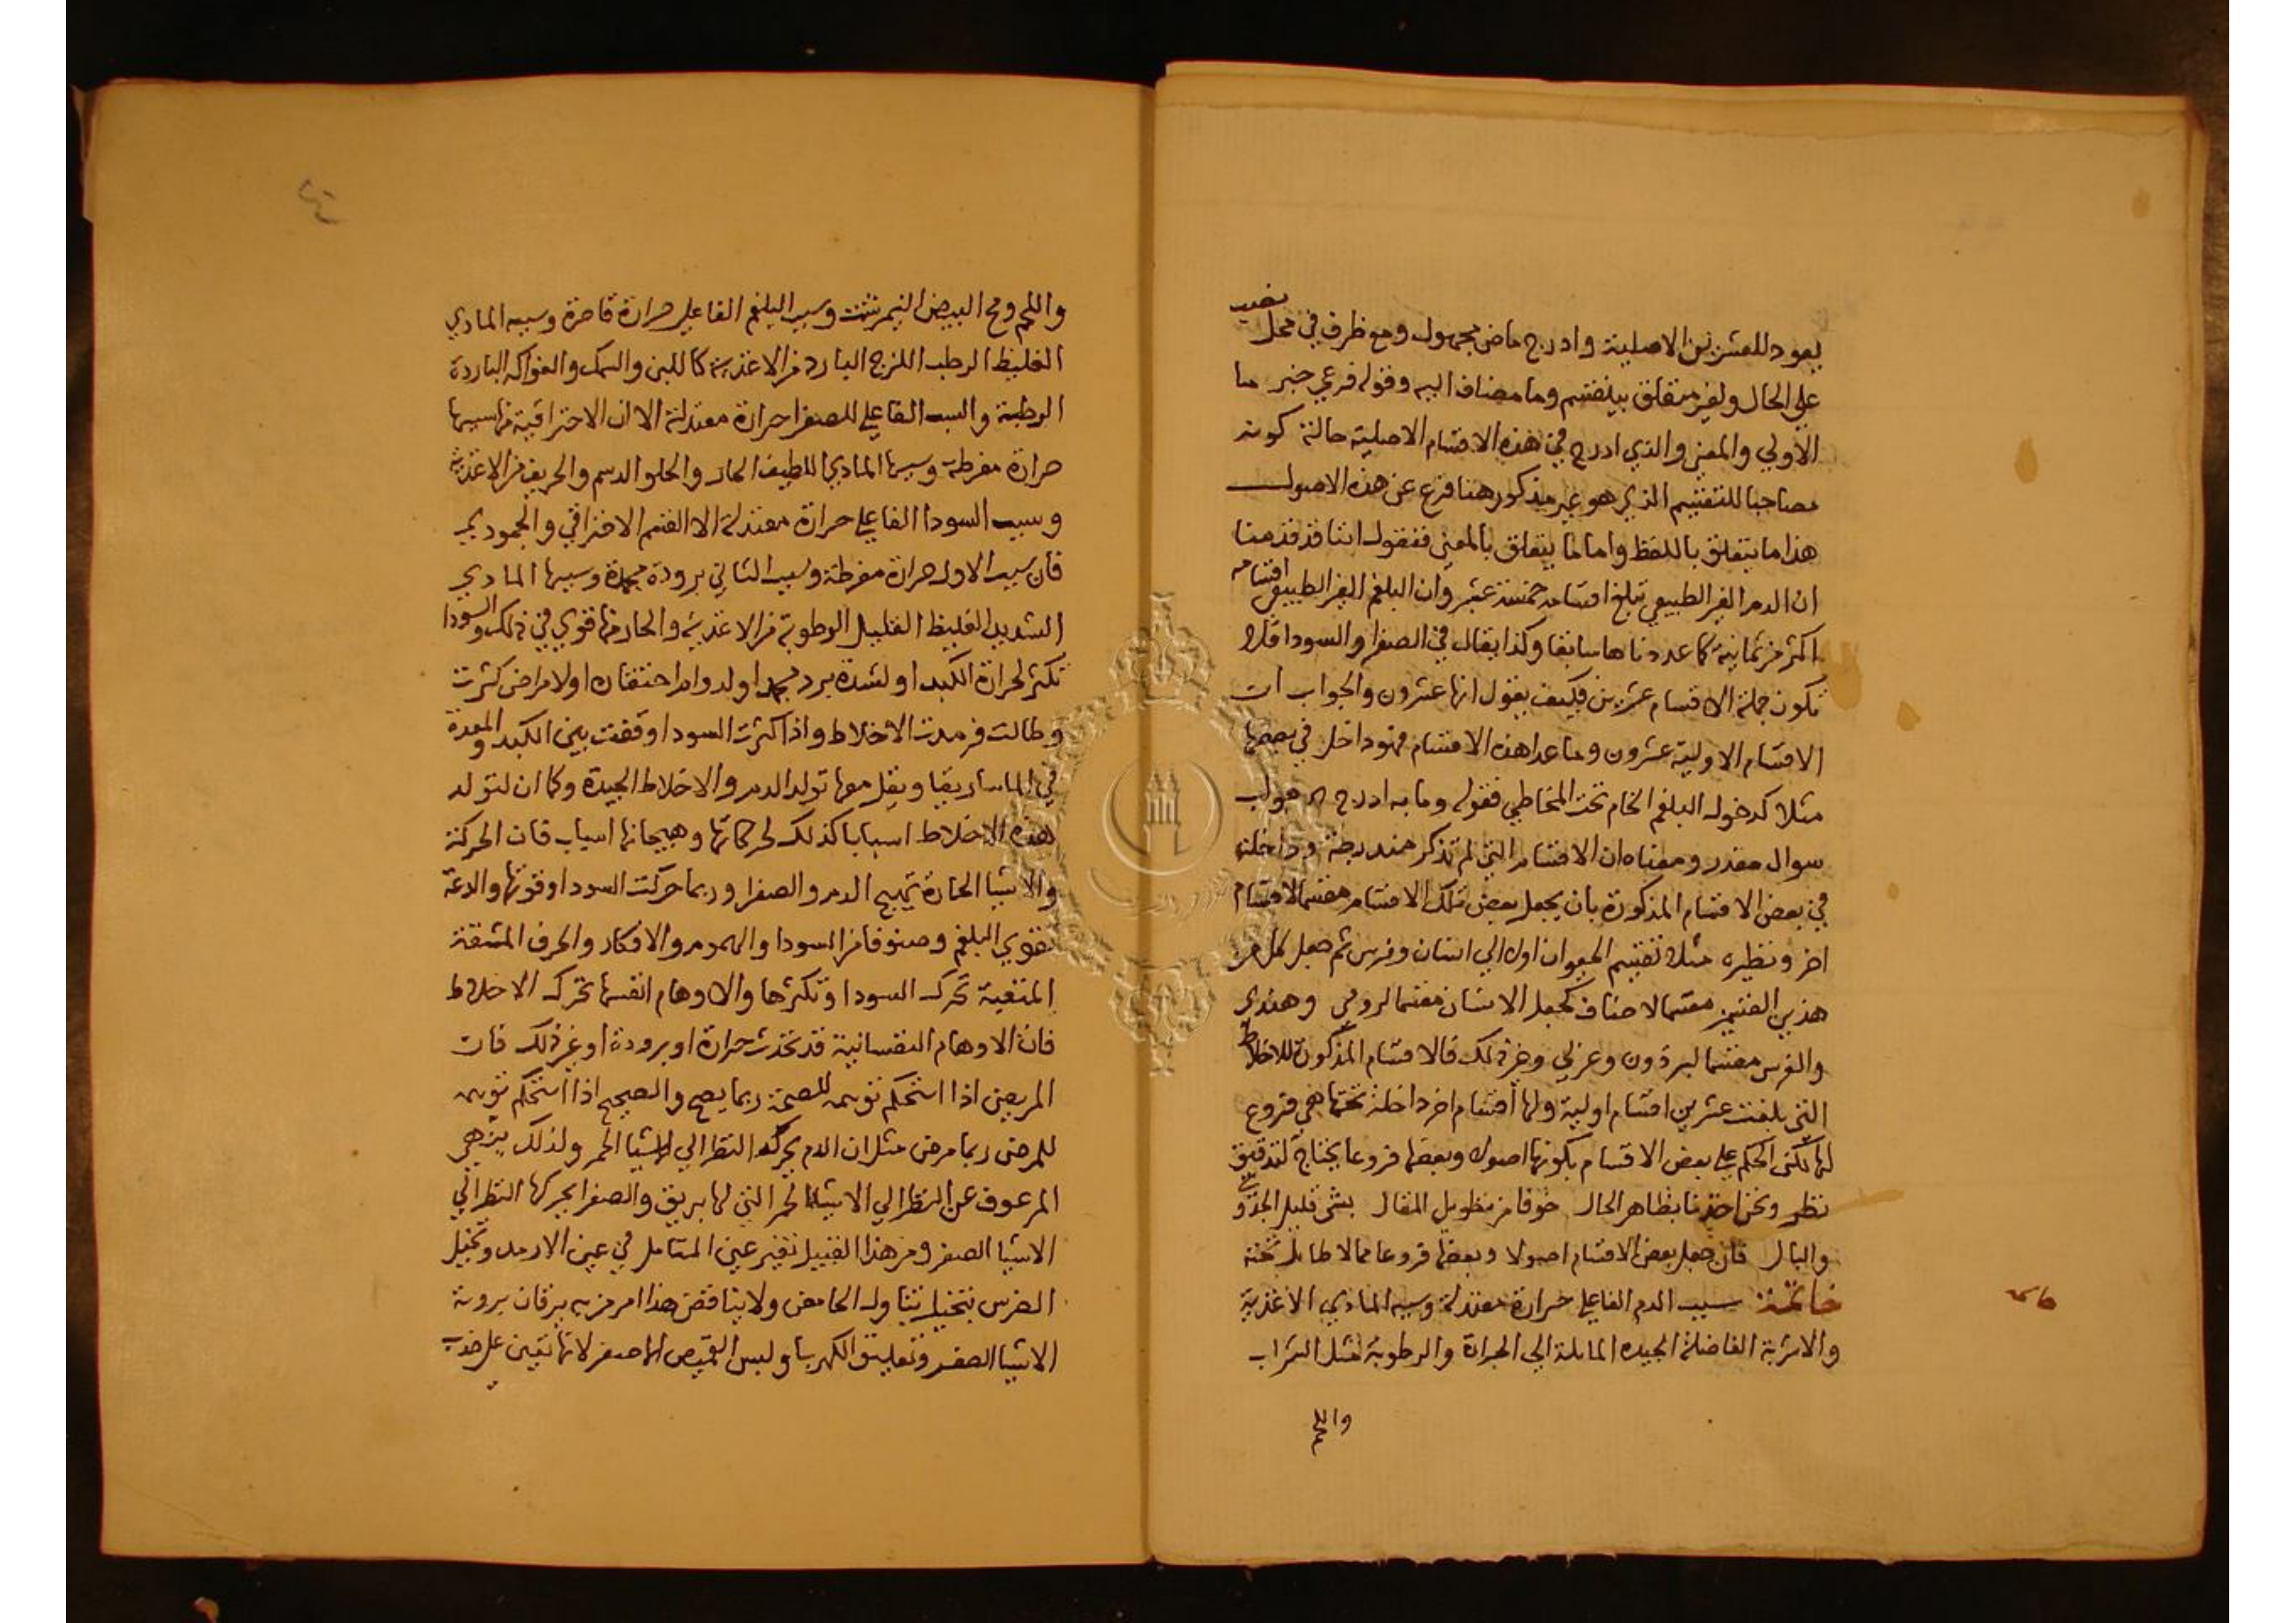 يعود للعشرين الاصلية وادرج ماض مجهول ومع ظرف في محل نصب
علي الحال ولغير متعلق بينقسم وما مضاف اليه وقوله فرعي خبر ما
الاولي والمعني والذي ادرج في هذه الاقسام الاصلية حالة كونه
مصاحبا للتقسيم الذي هو غير مذكور هنا فرع عن هذه الاصول
هذا ما يتعلق باللفظ واما ما يتعلق بالمعني فنقول اننا قد قدمنا
ان الدم الغير الطبيعي تبلغ اقسامه خمسة عشر وان البلغم الغير الطبيعي اقسامه
اكثر من ثمانية كما عددناها سابقا وكذا يقال في الصفرا والسودا فلا
تكون جملة الاقسام عشرين فكيف يقول انها عشرون والجواب ان
الاقسام الاولية عشرون وما عدا هذه الاقسام فهو داخل في بعضها
مثلا كدخول البلغم الخام تحت المخاطي فقوله وما به ادرج الخ جواب
سوال مقدر ومعناه ان الاقسام التي لم تذكر مندرجة وداخلة
في بعض الاقسام المذكورة بان يجعل بعض تلك الاقسام مقسما لاقسام
اخر ونظيره مثلا تقسيم الحيوان اولا الي انسان وفرس ثم جعل كل من
هذين القسمين مقسما لاصناف كجعل الانسان مقسما لرومي وهندي
والفرس مقسما لبرذون وعربي وغير ذلك فالاقسام المذكورة للاخلاط
التي بلغت عشرين اقسام اولية ولها اقسام اخر داخلة تحتها هي فروع
لها لكن الحكم علي بعض الاقسام بكونها اصولا وبعضها فروعا يحتاج لتدقيق
نظر ونحن اخذنا بظاهر الحال خوفا من تطويل المقال بشي قليل الجدوي
والبال فان جعل بعض الاقسام اصولا وبعضها فروعا مما لا طايل تحته
خاتمة سبب الدم الفاعلي حرارة معتدلة وسببه المادي الاغذية
والاشربة الفاضلة الجيدة المايلة الي الحرارة والرطوبة مثل الشراب
واللحم
واللحم ومح البيض النيمرشت وسبب البلغم الفاعلي حرارة قاصرة وسببه المادي
الغليظ الرطب اللزج البارد من الاغذية كاللبن والسمك والفواكه الباردة
الرطبة والسبب الفاعلي للصفرا حرارة معتدلة الا ان الاحتراقية منها سببها
حرارة مفرطة وسببها المادي اللطيف الحار والحلو الدسم والحريف من الاغذية
وسبب السودا الفاعلي حرارة معتدلة الا القسم الاحتراقي والجمودي
فان سبب الاول حرارة مفرطة وسبب الثاني برودة مجمدة وسببها المادي
الشديد الغليظ القليل الرطوبة من الاغذية والحار منها قوي في ذلك والسودا
تكثر لحرارة الكبد او لشدة برد مجمد او لدوام احتقان او لامراض كثرت
وطالت فرمدت الاخلاط واذا كثرت السودا وقفت بين الكبد والمعدة
في الماساريقا ويقل معها تولد الدم والاخلاط الجيدة وكما ان لتولد
هذه الاخلاط اسبابا كذلك لحركاتها وهيجانها اسباب فان الحركة
والاشيا الحارة تهيج الدم والصفرا وربما حركت السودا وقوتها والدعة
تقوي البلغم وصنوفا من السودا والهموم والافكار والحرف المشقة
المتعبة تحرك السودا وتكثرها والاوهام انفسها تحرك الاخلاط
فان الاوهام النفسانية قد تحدث حرارة او برودة او غير ذلك فان
المريض اذا استحكم توهمه للصحة ربما يصح والصحيح اذا استحكم توهمه
للمرض ربما مرض مثل ان الدم يحركه النظر الي الاشيا الحمر ولذلك ينهي
المرعوف عن النظر الي الاشيا الحمر التي لها بريق والصفرا يحركها النظر الي
الاشيا الصفر ومن هذا القبيل تغير عين المتامل في عين الارمد وتخيل
الضرس بتخيل تناول الحامض ولا يناقض هذا امر من به يرقان برؤية
الاشيا الصفر وتعليق الكهربا ولبس القميص الاصفر لانها تعين علي جذب